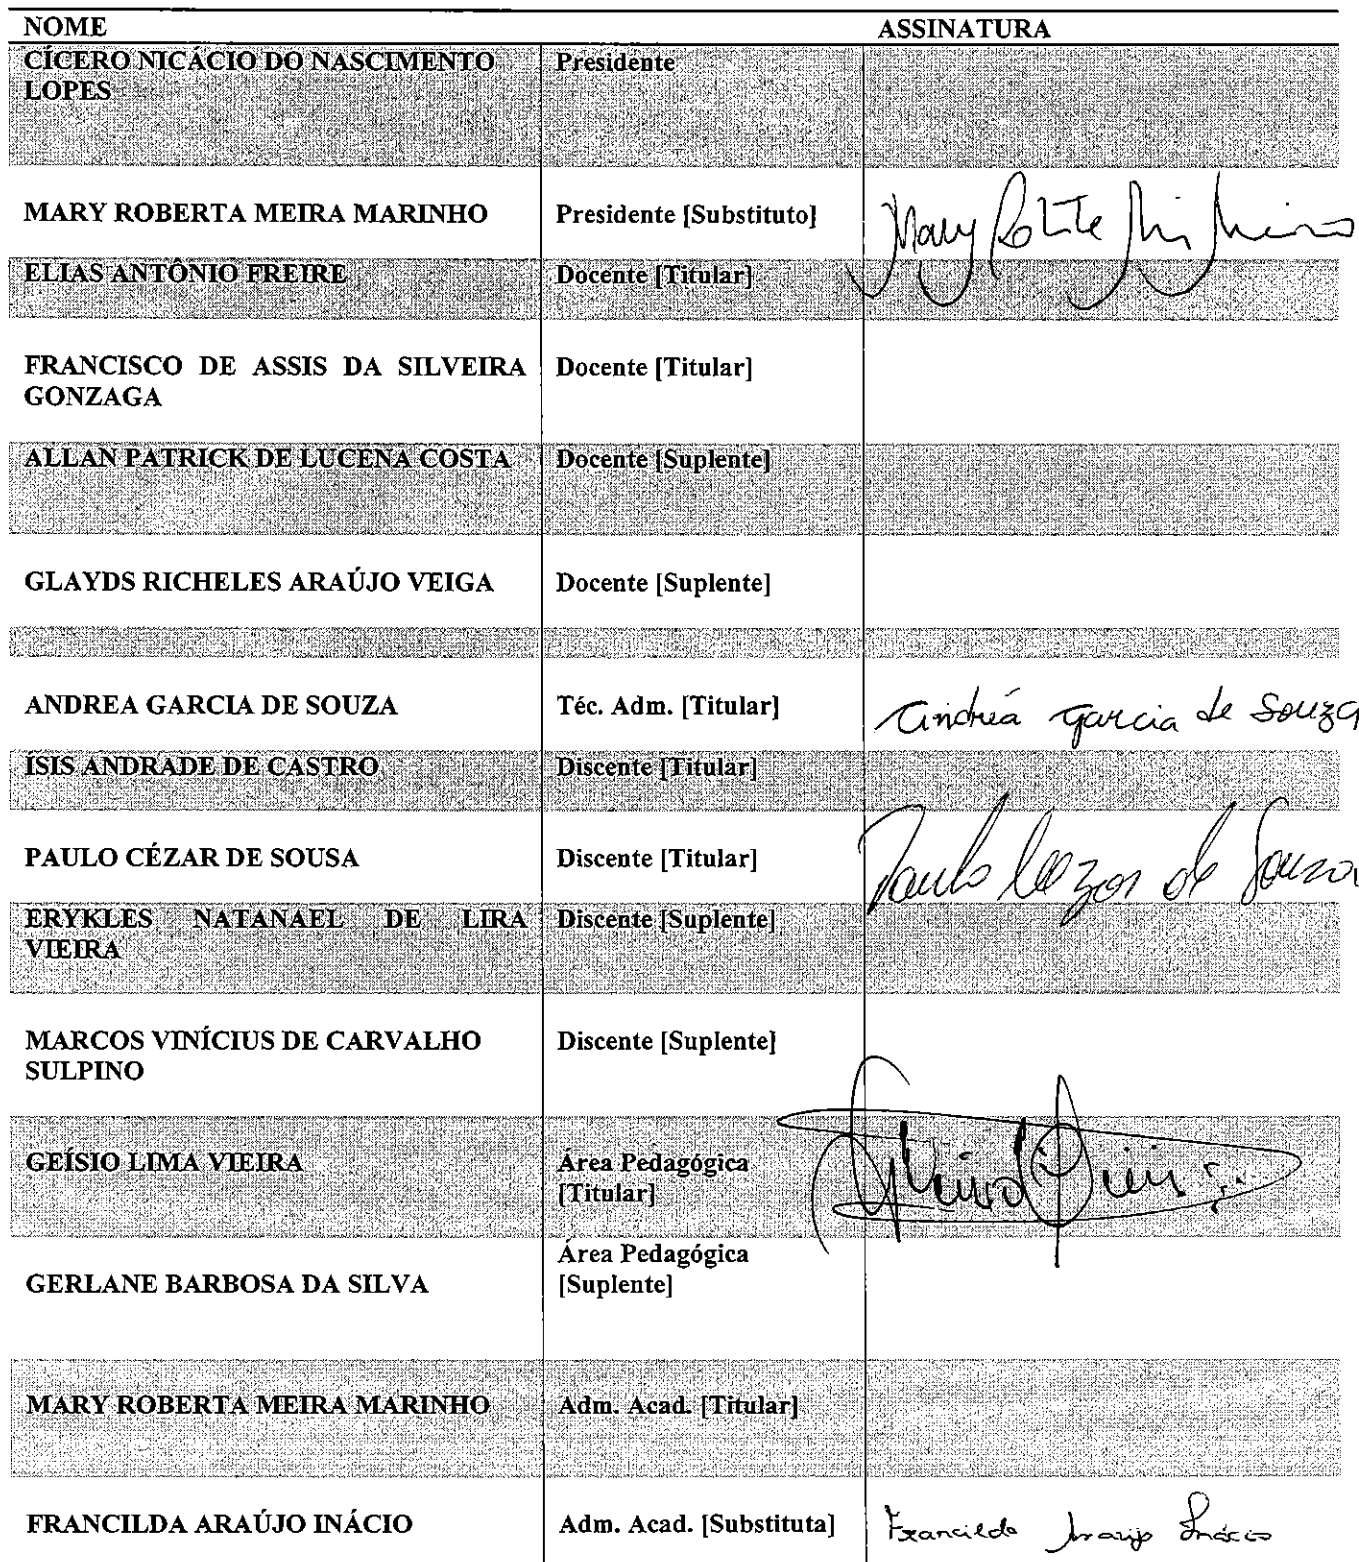 NOME ASSINATURA
CÍCERO NICÁCIO DO NASCIMENTO Presidente
LOPES
MARY ROBERTA MEIRA MARINHO Presidente [Substituto] Mary
ELIAS ANTÔNIO FREIRE Docente [Titular]
FRANCISCO DE ASSIS DA SILVEIRA Docente [Titular]
GONZAGA
ALLAN PATRICK DE LUCENA COSTA Docente [Suplente]
GLAYDS RICHELES ARAÚJO VEIGA Docente [Suplente]
ANDREA GARCIA DE SOUZA Téc. Adm. [Titular] Andréa Garcia de Souza
ISIS ANDRADE DE CASTRO Discente [Titular]
PAULO CÉZAR DE SOUSA Discente [Titular] Paulo Cezar de Souza
ERYKLES NATANAEL DE LIRA Discente [Suplente]
VIEIRA
MARCOS VINÍCIUS DE CARVALHO Discente [Suplente]
SULPINO
GEÍSIO LIMA VIEIRA Área Pedagógica
[Titular]
Área Pedagógica
GERLANE BARBOSA DA SILVA [Suplente]
MARY ROBERTA MEIRA MARINHO Adm. Acad. [Titular]
FRANCILDA ARAÚJO INÁCIO Adm. Acad. [Substituta] Francilda Araujo Inácio